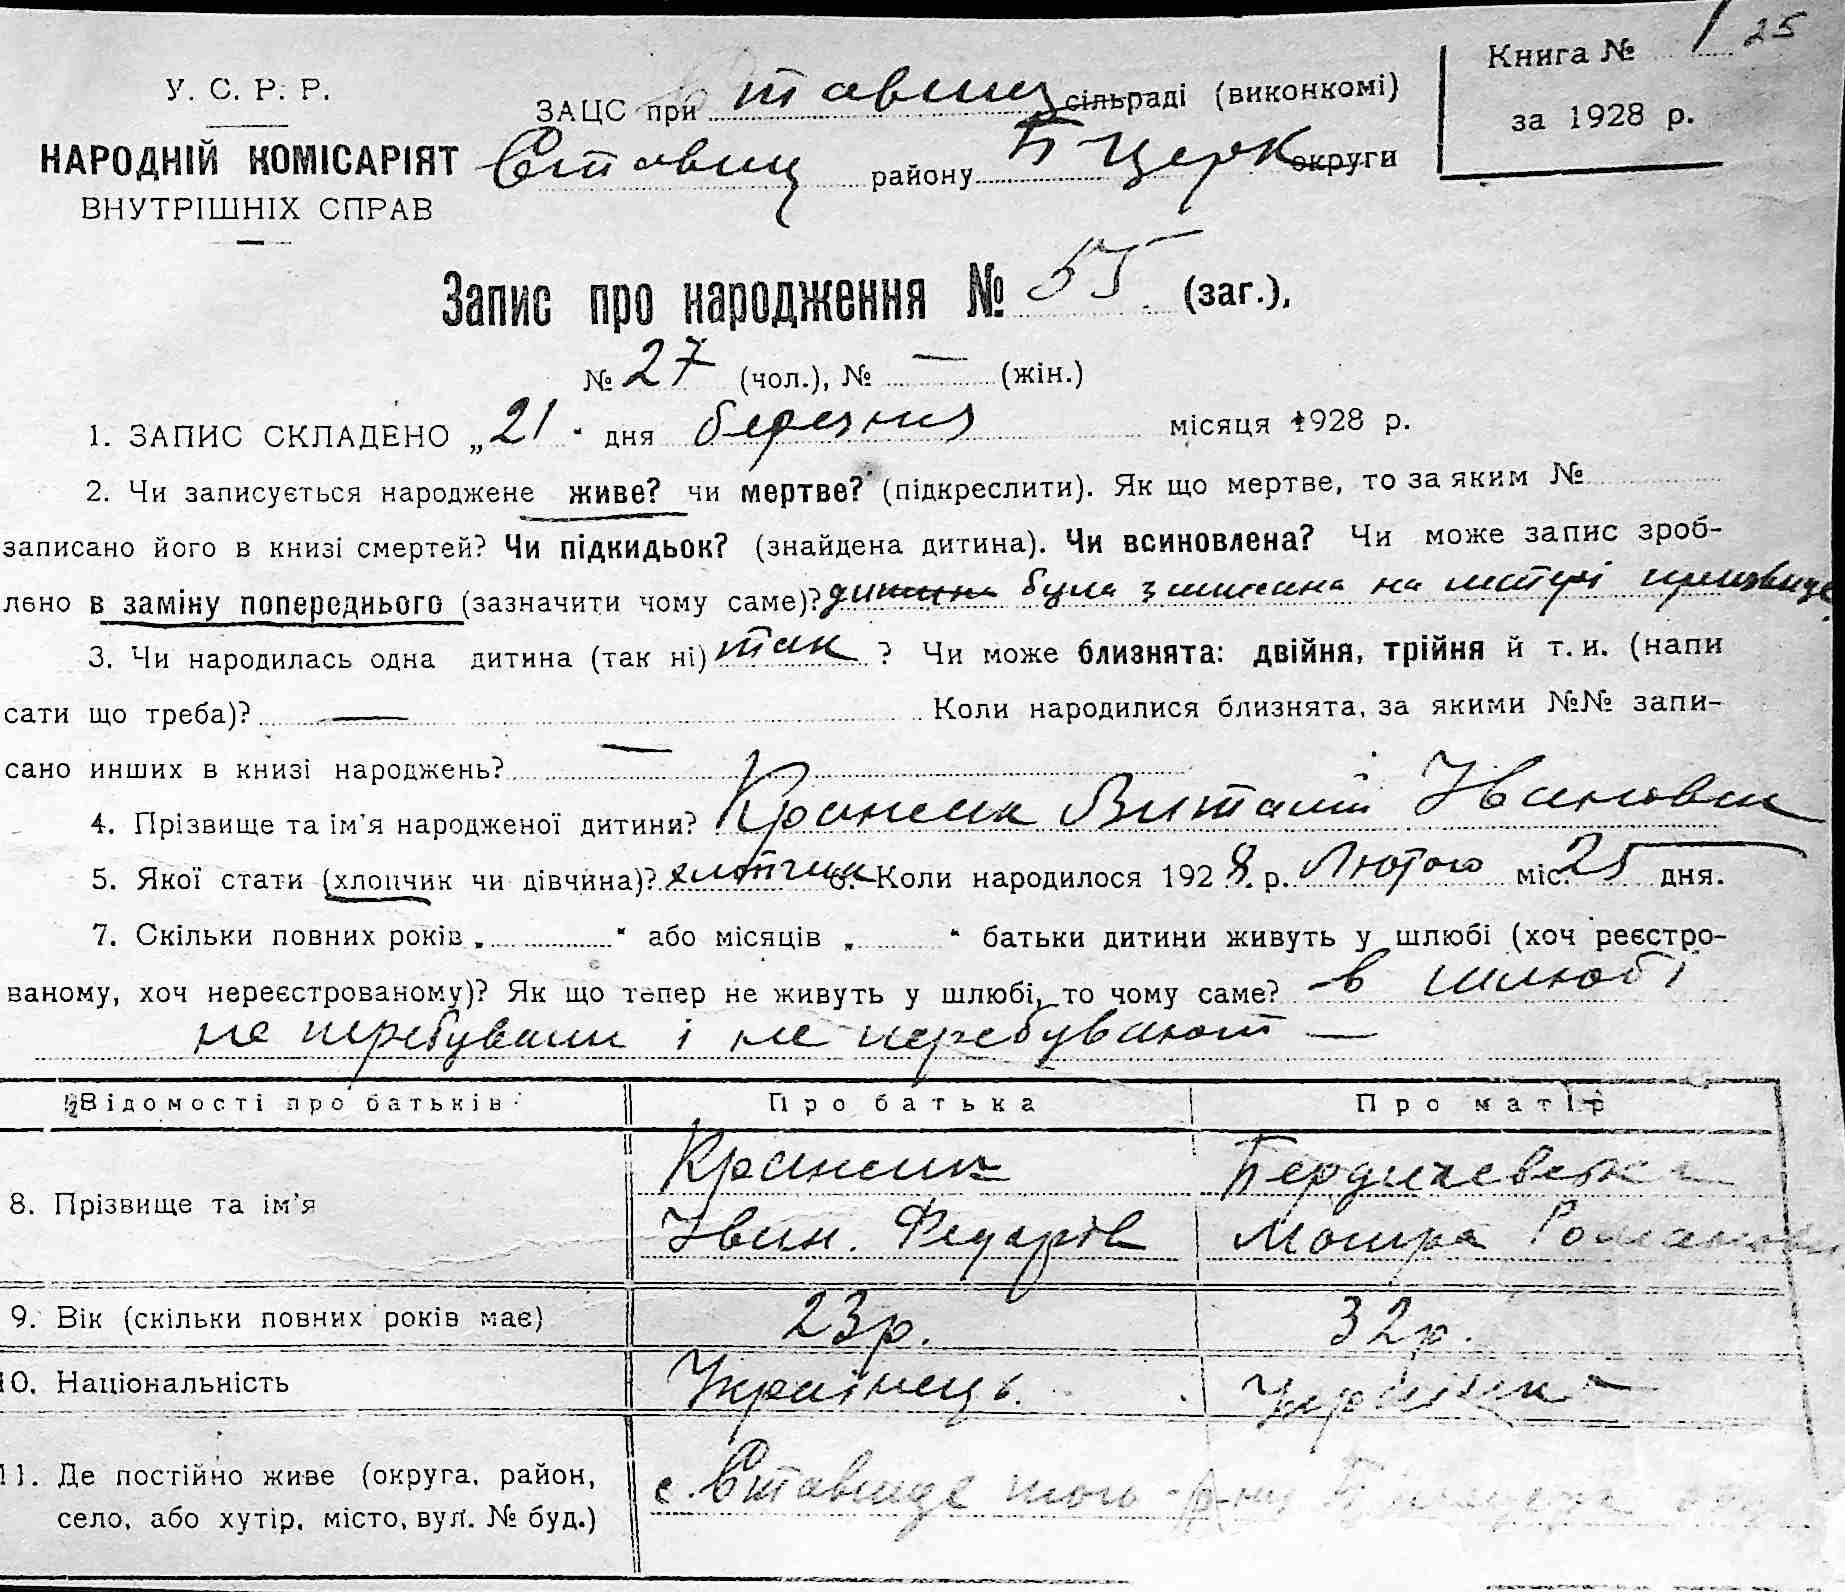 Книга № 1 25
У. С. Р. Р.
ЗАЦС при Ставищ сільраді (виконкомі)
за 1928 р.
НАРОДНІЙ КОМІСАРІЯТ
Ставищ району Б Церк округи
ВНУТРІШНІХ СПРАВ
Запис про народження № 55 (заг.),
№ 27 (чол.), № — (жін.)
1. ЗАПИС СКЛАДЕНО „21“ дня березня місяця 1928 р.
2. Чи записується народжене живе? чи мертве? (підкреслити). Як що мертве, то за яким №
записано його в книзі смертей? Чи підкидьок? (знайдена дитина). Чи всиновлена? Чи може запис зроб-
лено в заміну попереднього (зазначити чому саме)? дитина була записана на матері призвище
3. Чи народилась одна дитина (так ні) так ? Чи може близнята: двійня, трійня й т. и. (напи
сати що треба)? — Коли народилися близнята, за якими №№ запи-
сано инших в книзі народжень? —
4. Прізвище та ім'я народженої дитини? Віталій Іванович
5. Якої стати (хлопчик чи дівчина)? хлопчик 6. Коли народилося 1928 р. Лютого міс. 25 дня.
7. Скільки повних років „ “ або місяців „ “ батьки дитини живуть у шлюбі (хоч реєстро-
ваному, хоч нереєстрованому)? Як що тепер не живуть у шлюбі, то чому саме? в шлюбі
не перебували і не перебувають —
Відомості про батьків Про батька Про матір
8. Прізвище та ім'я
Бердичевська
Іван. Федорів Мотря Романов
9. Вік (скільки повних років має) 23 р. 32 р.
10. Національність Українець. Українка
11. Де постійно живе (округа, район,
с. Ставище того р-ну
село, або хутір, місто, вул. № буд.)